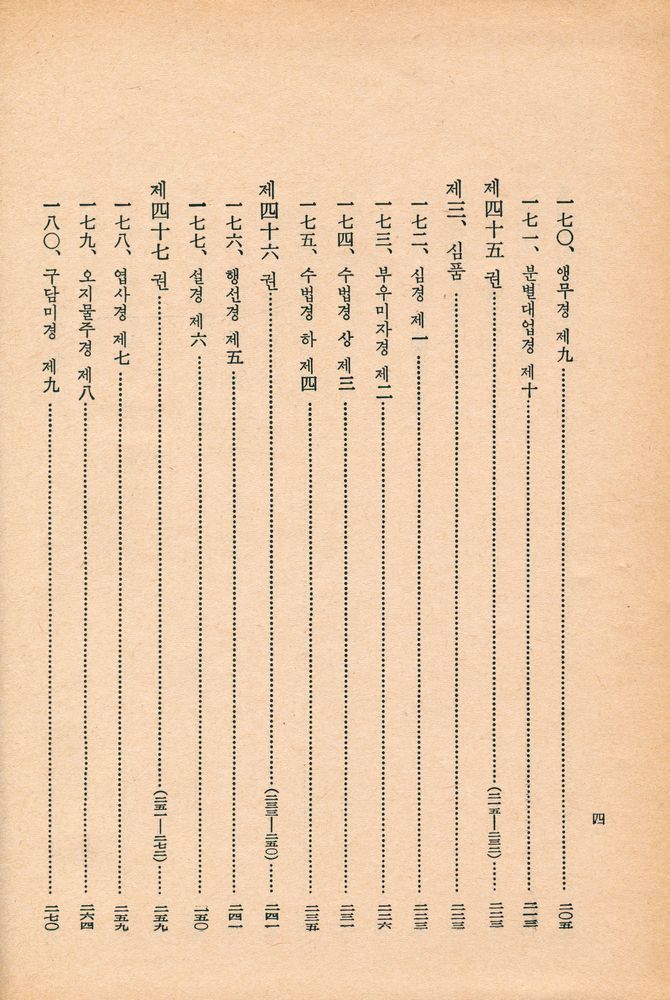 四
一七〇、앵무경 제九……二〇五
一七一、분별대업경 제十……二一三
제四十五권……(二一五―二三二)……二二三
제三、심품……二二三
一七二、심경 제一……二二三
一七三、부우미자경 제二……二二六
一七四、수법경 상 제三……二三一
一七五、수법경 하 제四……二三五
제四十六권……(二三三―二五〇)……二四一
一七六、행선경 제五……二四一
一七七、설경 제六……二五〇
제四十七권……(二五一―二七二)……二五九
一七八、엽사경 제七……二五九
一七九、오지물주경 제八……二六四
一八〇、구담미경 제九……二七〇